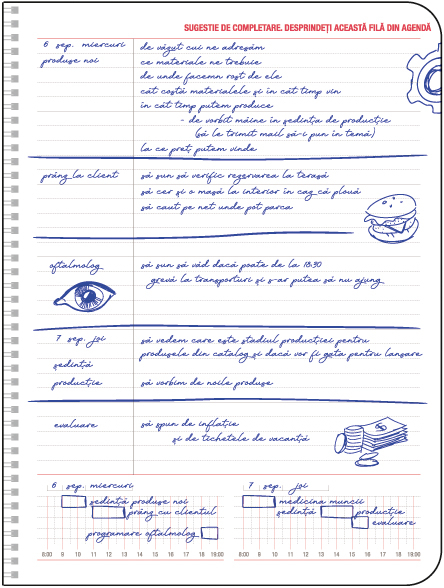 SUGESTIE DE COMPLETARE. DESPRINDEȚI ACEASTĂ FILĂ DIN AGENDĂ
6 sep. miercuri
produse noi
de văzut cui ne adresăm
ce materiale ne trebuie
de unde facemn rost de ele
cât costă materialele și în cât timp vin
în cât timp putem produce
- de vorbit mâine în ședința de producție
(să le trimit mail să-i pun în temă)
la ce preț putem vinde
prânz la client
să sun să verific rezervarea la terasă
să cer și o masă la interior în caz că plouă
să caut pe net unde pot parca
oftalmolog
să sun să văd dacă poate de la 18:30
grevă la transporturi și s-ar putea să nu ajung
7 sep. joi
ședință
producție
să vedem care este stadiul producției pentru
produsele din catalog și dacă vor fi gata pentru lansare
să vorbim de noile produse
evaluare
să spun de inflație
și de tichetele de vacanță
6 sep. miercuri
ședință produse noi
prânz cu clientul
programare oftalmolog
8:00 9 10 11 12 13 14 15 16 17 18 19:00
7 sep. joi
medicina muncii
ședință producție
evaluare
8:00 9 10 11 12 13 14 15 16 17 18 19:00